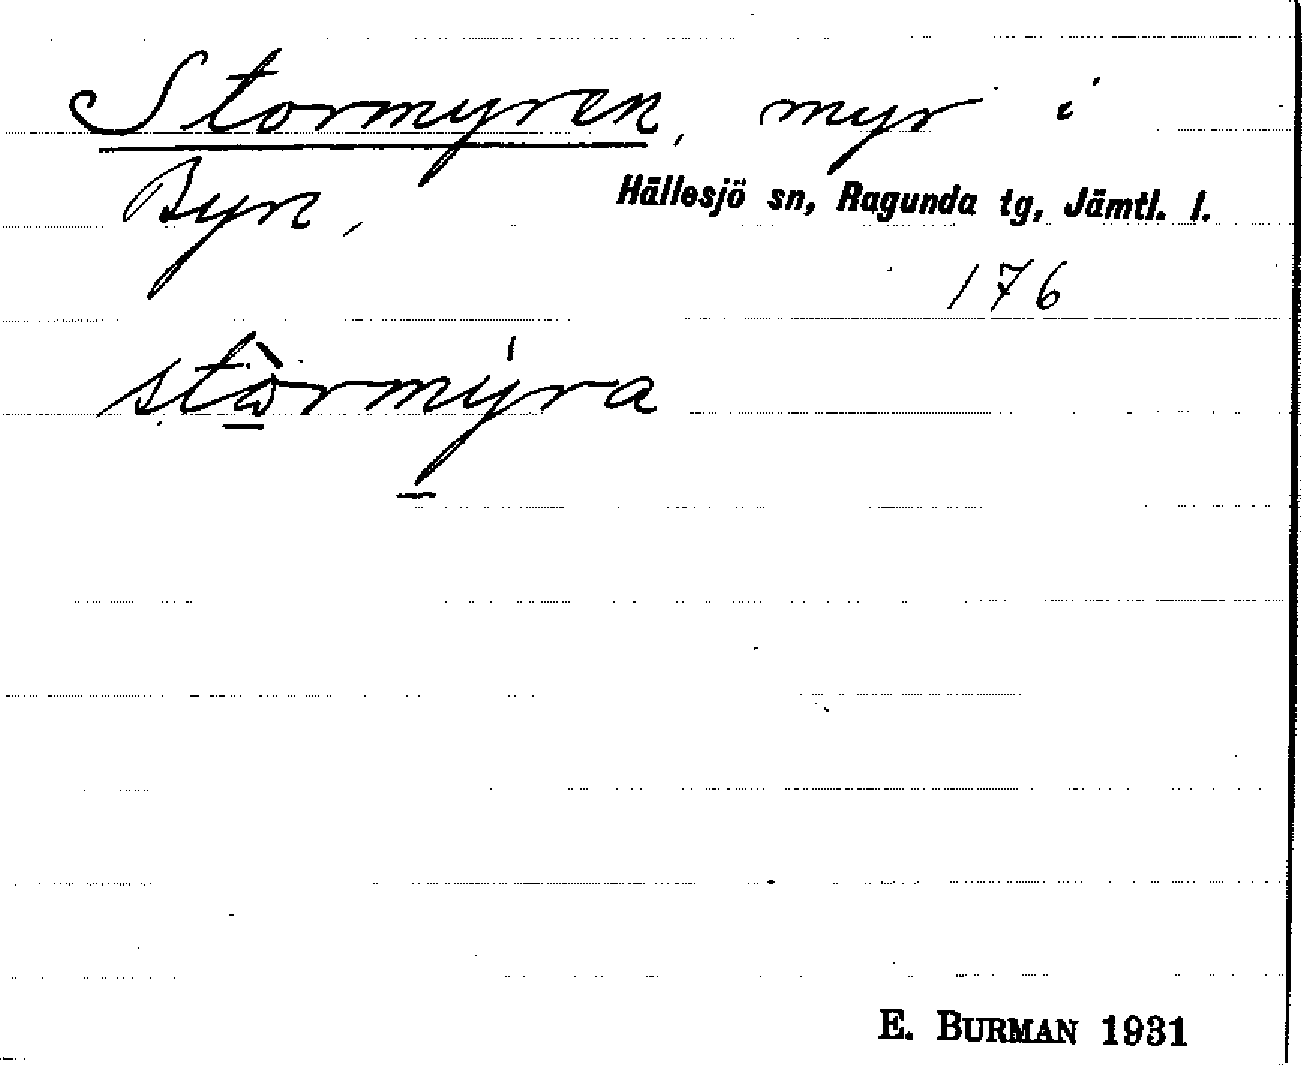 Stormyren, myr i
Byn,
Hällesjö sn, Ragunda tg, Jämtl. l.
176
stòrmýra
E. BURMAN 1931